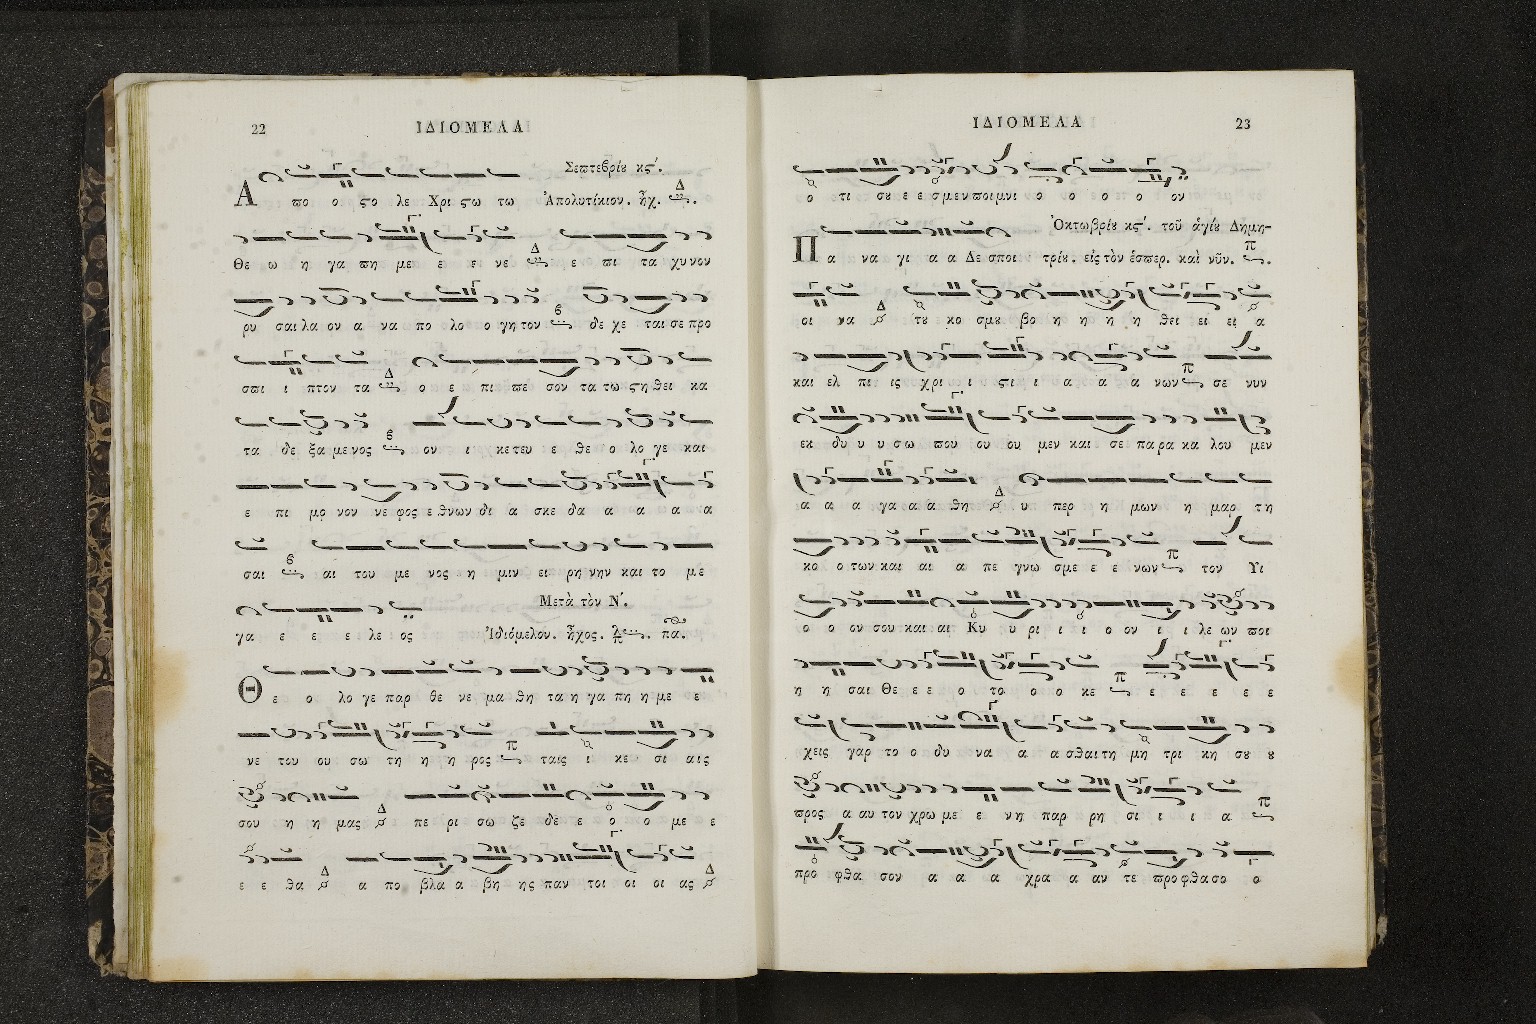 22 ΙΔΙΟΜΕΛΑ
Σεπτεβρίου κϛ´.
Α πο ο ϛο λε Χρι ϛω τω Ἀπολυτίκιον. ἦχ. Δ
Θε ω η γα πη με ε ε νε Δ ε πι τα χυ νον
ρυ σαι λα ον α να πο λο ο γη τον δε χε ται σε προ
σπι ι πτον τα Δ ο ε πι πε σον τα τω ϛη θει κα
τα δε ξα με νος ον ι κε τευ ε θε ο λο γε και
ε πι μο νον νε φος ε θνων δι α σκε δα α α α α
σαι αι του με νος η μιν ει ρη νην και το με
Μετὰ τὸν Ν´.
γα ε ε ε λε ος Ἰδιόμελον. ἦχος. πα.
Θ ε ο λο γε παρ θε νε μα θη τα η γα πη η με ε
νε του ου σω τη η η ρος π ταις ι κε σι αις
σου η η μας Δ πε ρι σω ζε δε ε ο ο με ε
ε ε θα Δ α πο βλα α βη ης παν τοι οι οι ας Δ
ΙΔΙΟΜΕΛΑ 23
ο τι σȣ ε ε σμεν ποι μνι ο ο ο ο ον
Ὀκτωβρίȣ κϛ´. τοῦ ἁγίȣ Δημη-
Π α να γι α α Δε σποι τρίȣ. εἰς τὸν ἑσπερ. καὶ νῦν. π
οι να Δ τȣ κο σμȣ βο η η η η θει ει ει α
και ελ πι ις χρι ι ϛι ι α α α νων π σε νυν
εκ δυ υ υ σω που ου ου μεν και σε πα ρα κα λου μεν
α α α γα α α θη Δ υ περ η μων η μαρ τη
κο ο των και αι α πε γνω σμε ε ε νων π τον Υι
ο ο ον σου και αι Κυ υ ρι ι ι ο ον ι ι λε ων ποι
η η σαι Θε ε ε ο το ο ο κε π ε ε ε ε ε
χεις γαρ το ο δυ να α α σθαι τη μη τρι κη σȣ ȣ
προς α αυ τον χρω με ε νη παρ ρη σι ι ι α π
προ φθα σον α α α χρα α αν τε προ φθα σο ο